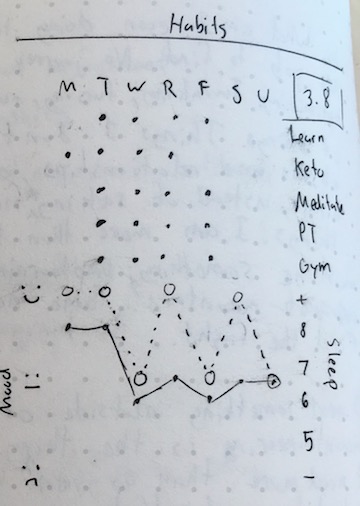 Habits
M T W R F S U 3.8
Learn
Keto
Meditate
PT
Gym
C: +
8
Mood |: 7 Sleep
6
5
): -